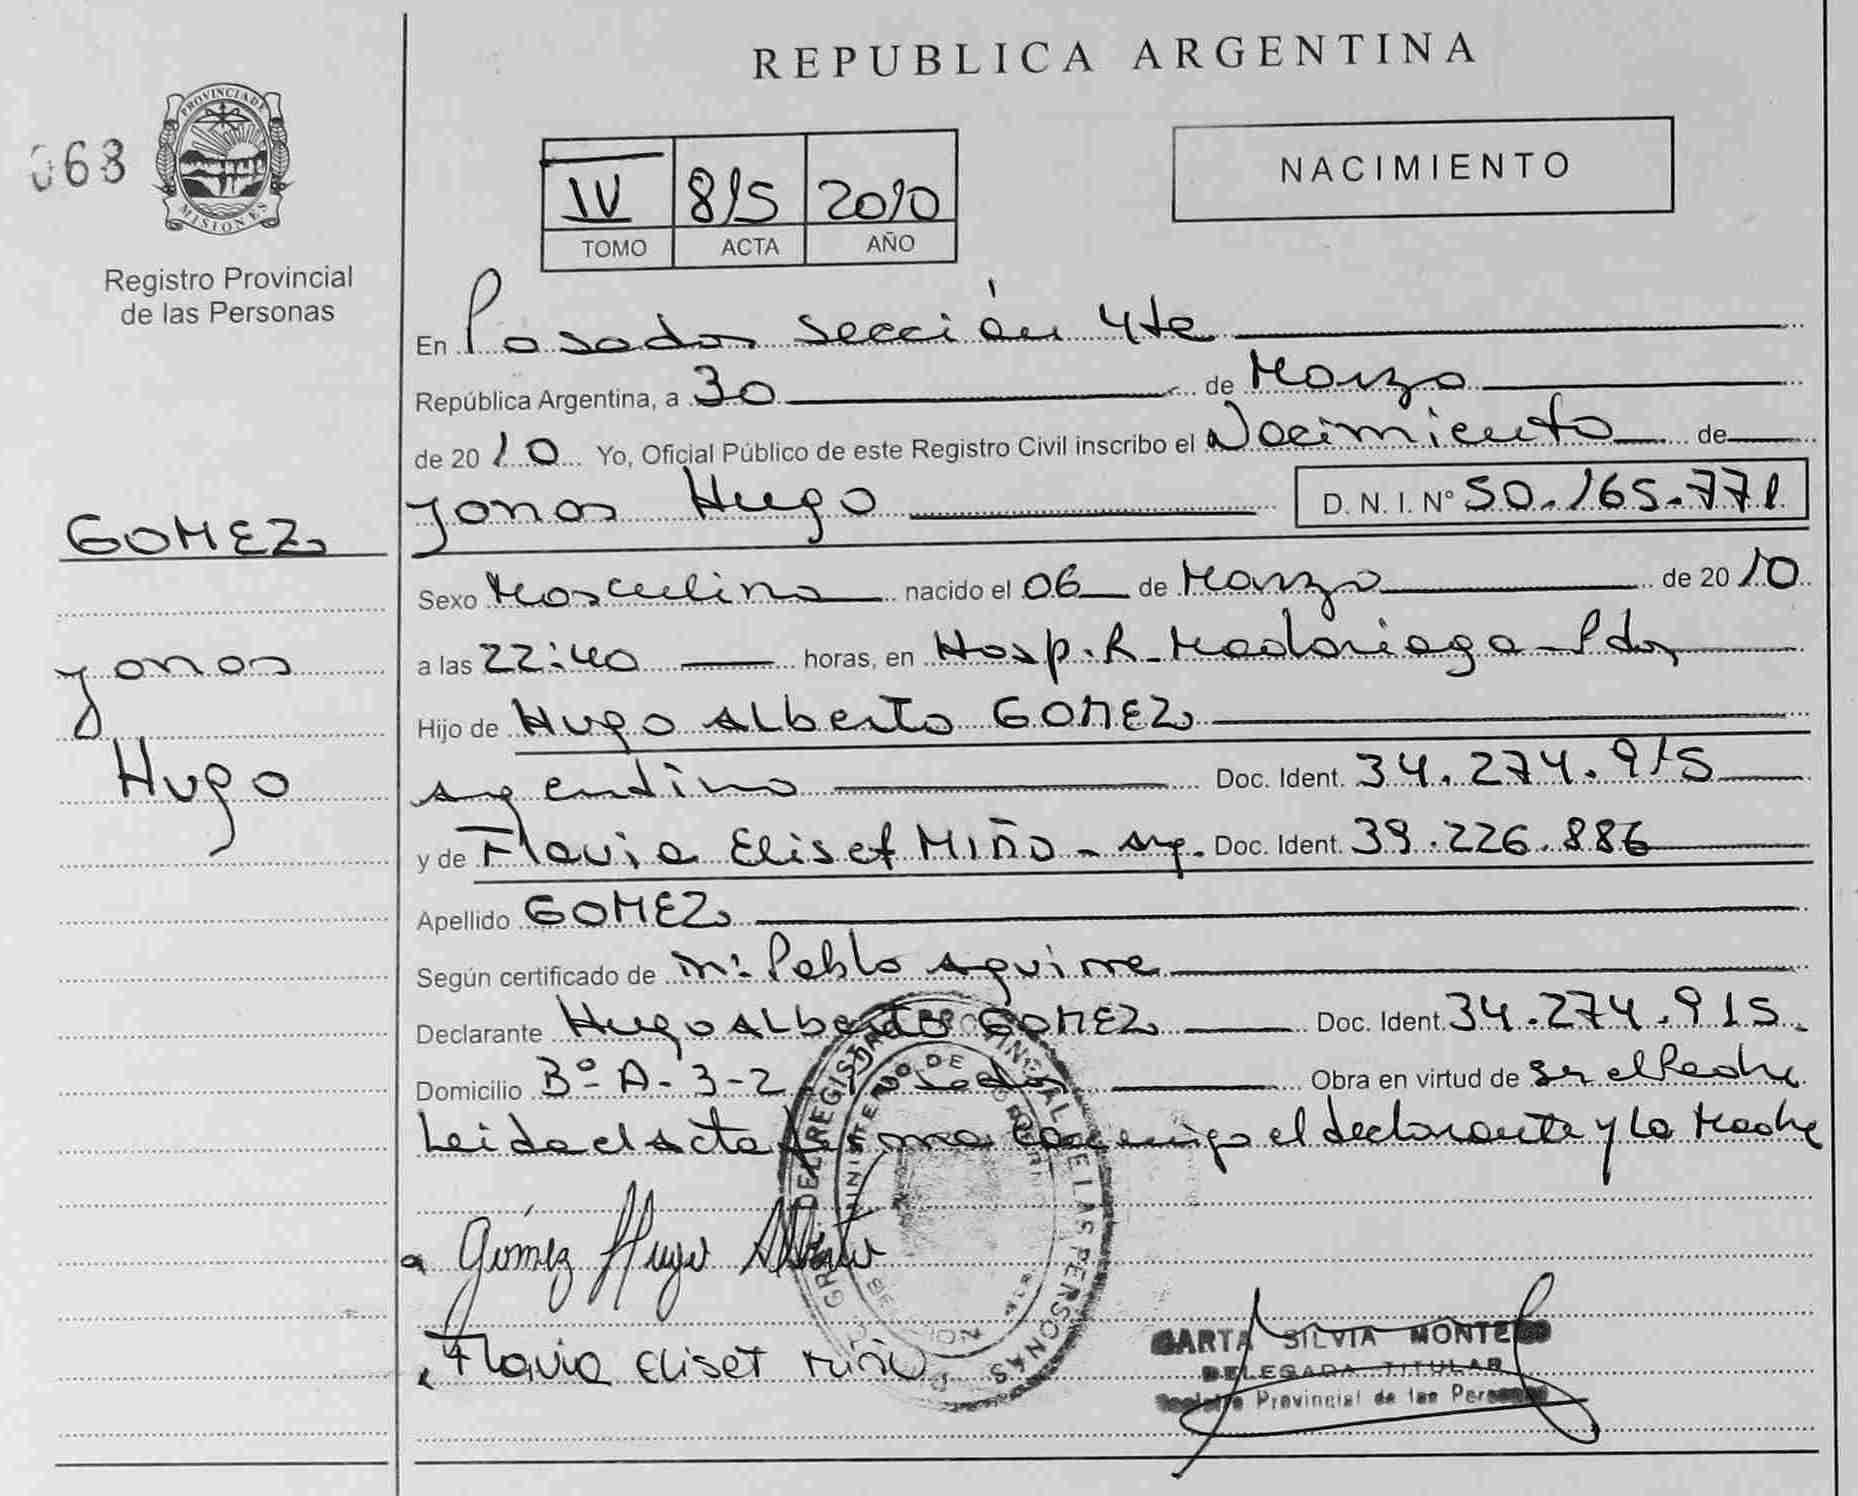 REPUBLICA ARGENTINA
068
PROVINCIA DE
MISIONES
Registro Provincial
de las Personas
IV 815 2010
TOMO ACTA AÑO
NACIMIENTO
En Posadas sección 4ta
República Argentina, a 30 de Marzo
de 2010 Yo, Oficial Público de este Registro Civil inscribo el Nacimiento de
Jonas Hugo D. N. I. N° 50.165.771
GOMEZ
Jonas
Hugo
Sexo Masculino nacido el 06 de Marzo de 2010
a las 22:40 horas, en Hosp. R. Madariaga - Pdas
Hijo de Hugo Alberto GOMEZ
argentino Doc. Ident. 34.274.915
y de Flavia Eliset MIÑO - arg. Doc. Ident. 39.226.886
Apellido GOMEZ
Según certificado de Pablo Aguirre
Declarante Hugo Alberto GOMEZ Doc. Ident. 34.274.915.
Domicilio Bº A-3-2 Posadas Obra en virtud de ser el Padre
Leida el Acta firma conmigo el declarante y la Madre
Gómez Hugo Alberto
Flavia Eliset Miño
SILVIA
DELEGADA TITULAR
Registro Provincial de las Personas